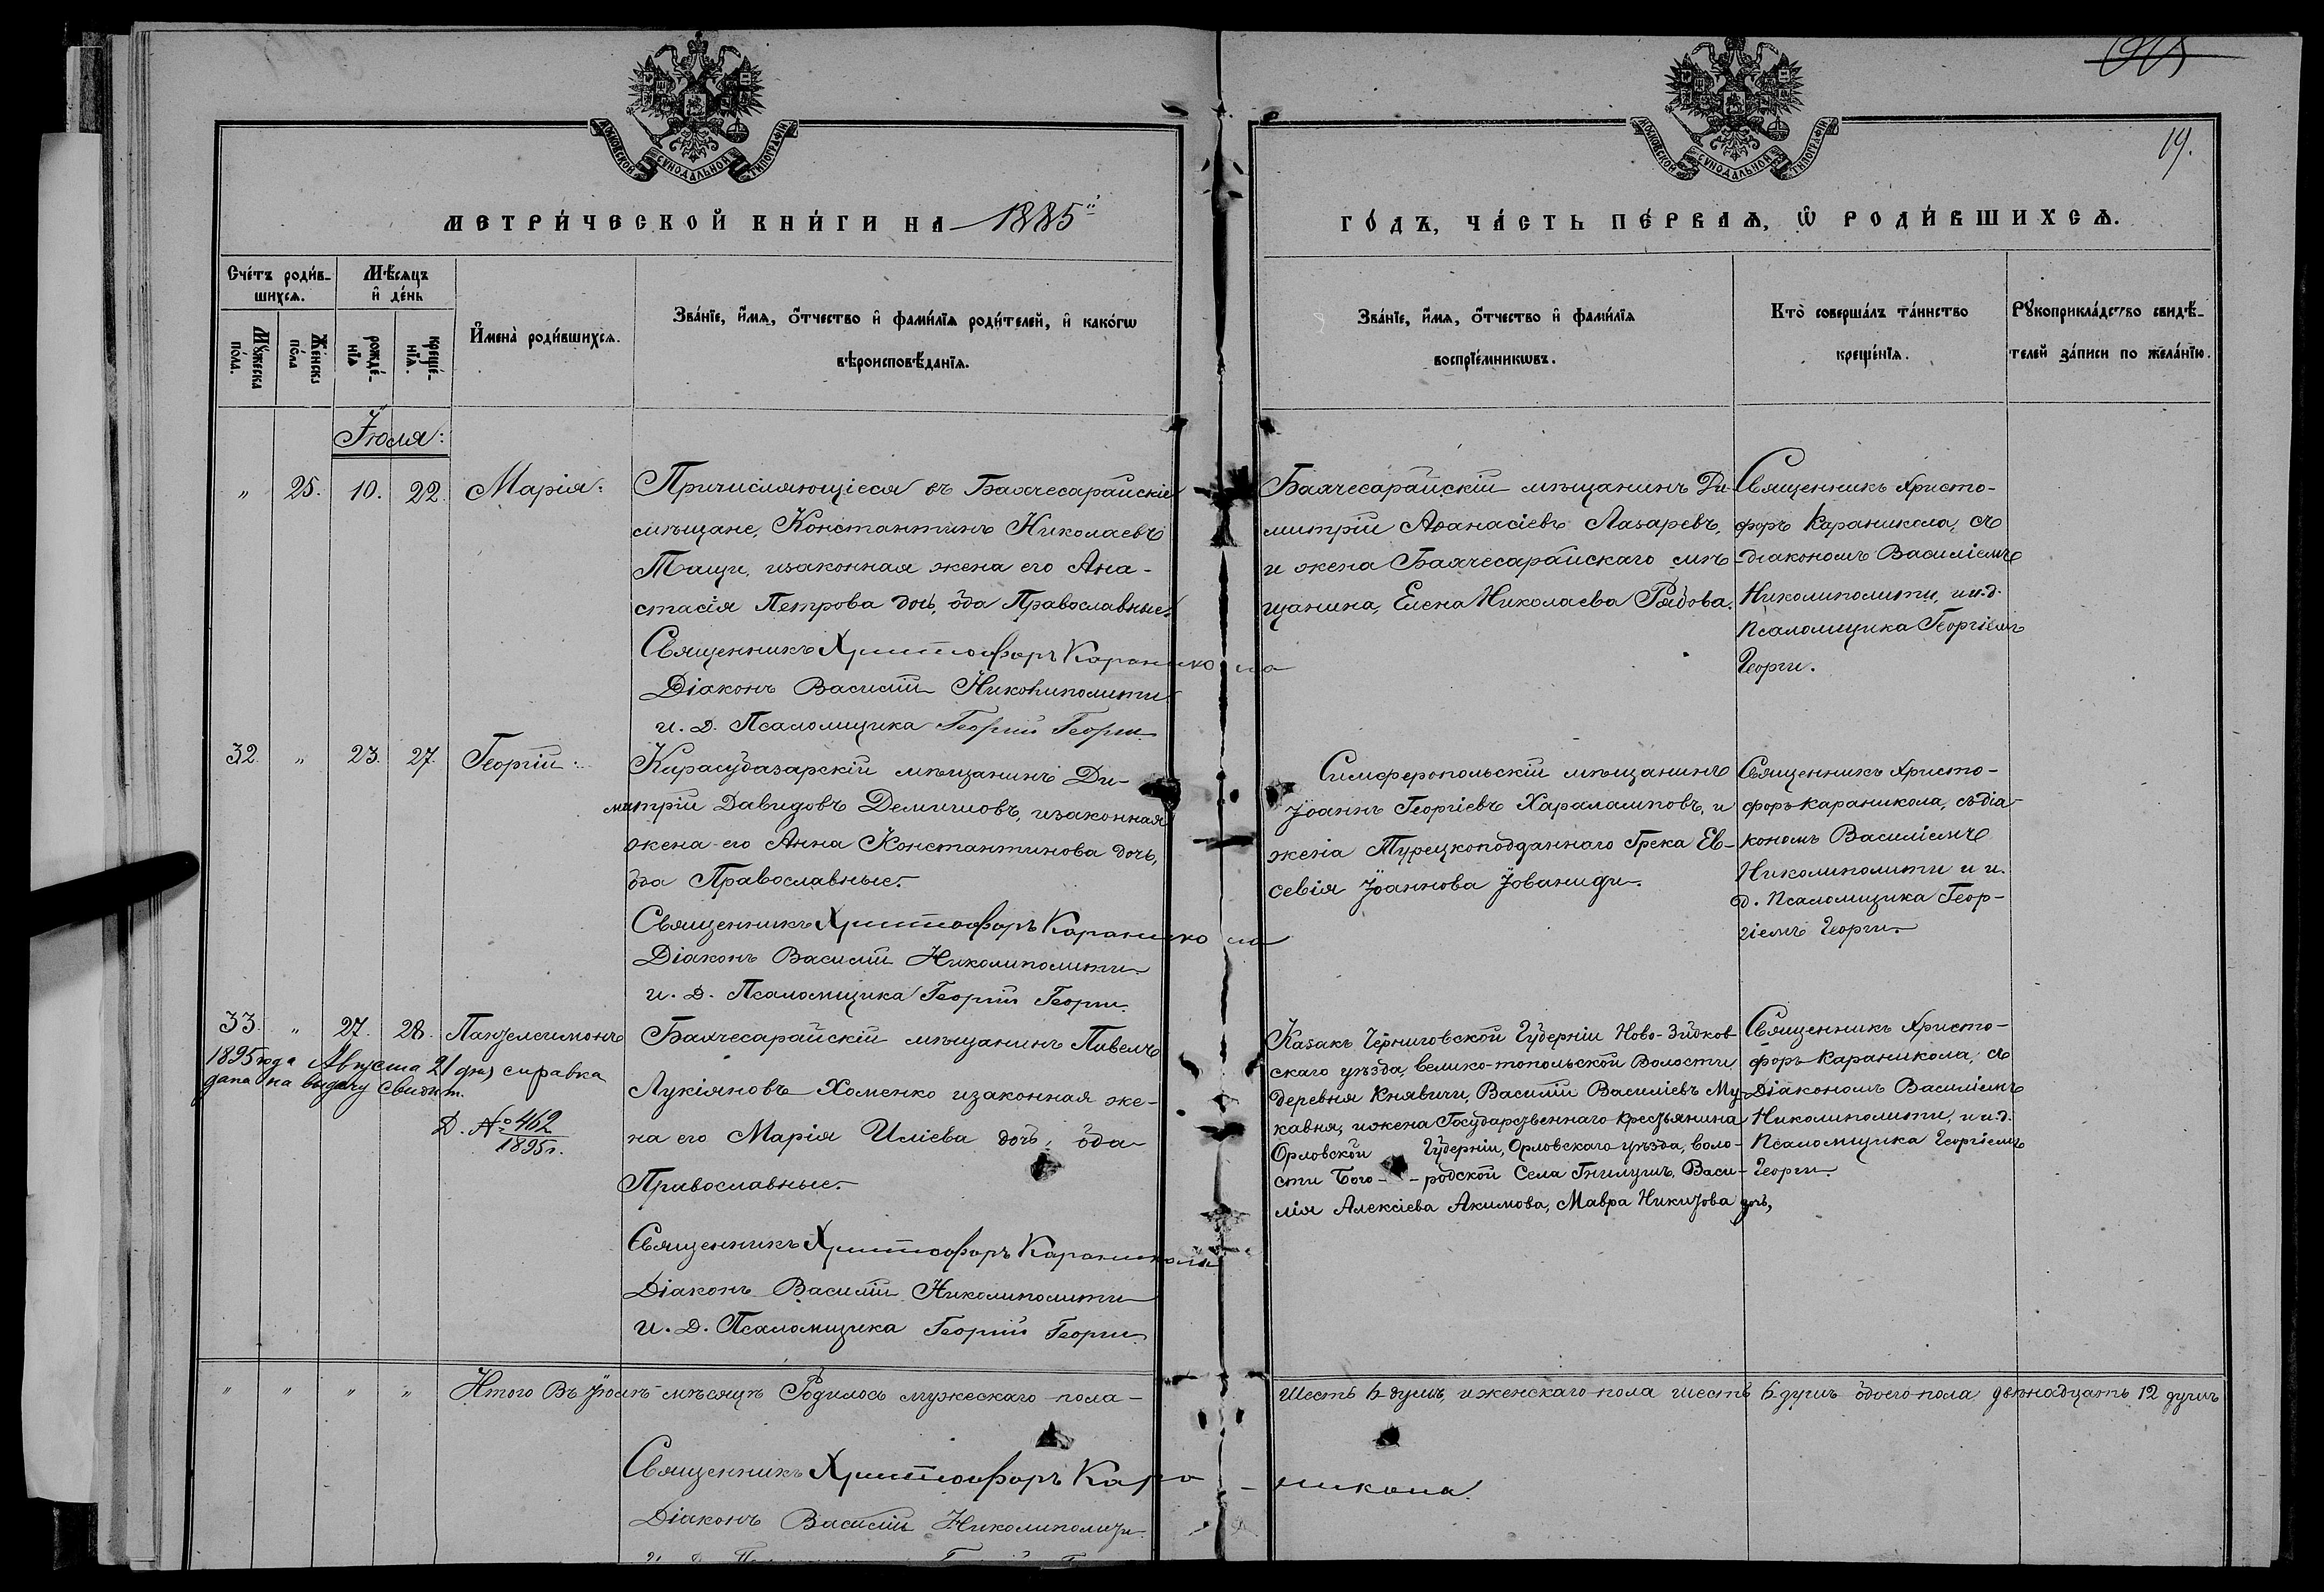 МОСКОВСКОЙ СѴНОДАЛЬНОЙ ТИПОГРАФІИ
МОСКОВСКОЙ СѴНОДАЛЬНОЙ ТИПОГРАФІИ
19.
МЕТРИ́ЧЕСКОЙ КНИ́ГИ НА 1885й
ГО́ДЪ, ЧА́СТЬ ПЕ́РВАѦ, Ѡ҆ РОДИ́ВШИХСѦ.
Сче́тъ роди́в-
шихсѧ.
Мѣ́сѧцъ
и҆ де́нь
Мꙋ́жеска
по́ла.
Же́нска
по́ла
рожде́-
нїѧ
креще́-
нїѧ.
И҆мена̀ роди́вшихсѧ.
Зва́нїе, и҆́мѧ, ѻ҆́тчество и҆ фами́лїѧ роди́телей, и҆ како́гѡ
вѣроисповѣ́данїѧ.
Зва́нїе, и҆́мѧ, ѻ҆́тчество и҆ фами́лїѧ
воспрїе́мникѡвъ.
Кто̀ соверша́лъ та́инство
креще́нїѧ.
Рꙋкоприкла́дство свидѣ́-
телей за́писи по жела́нїю.
Іюля:
" 25. 10. 22. Марія:
Причисляющіеся въ Бахчесарайскіе
мѣщане, Константинъ Николаевъ
Тащи, изаконная жена его Ана-
стасія Петрова дочь, оба Православные.
Священникъ Христофоръ Караникола
Діаконъ Василій Николиполити
и. д. Псаломщика Георгій Георги
Бахчесарайскій мѣщанинъ Ди-
митрій Аѳанасіевъ Лазаревъ,
и жена Бахчесарайскаго мѣ-
щанина, Елена Николаева Рядова.
Священникъ Христо-
форъ Караникола, съ
діакономъ Василіемъ
Николиполити, и и.д.
Псаломщика Георгіемъ
Георги.
32. " 23. 27. Георгій:
Карасубазарскій мѣщанинъ Ди-
митрій Давидовъ Демишовъ, изаконная
жена его Анна Константинова дочь,
оба Православные.
Священникъ Христофоръ Караникола
Діаконъ Василій Николиполити
и. д. Псаломщика Георгій Георги.
Симферопольскій мѣщанинъ
Іоаннъ Георгіевъ Харалампов, и
жена Турецкоподданнаго Грека Ев-
севія Іоаннова Іованиди.
Священникъ Христо-
форъ Караникола, съ діа-
кономъ Василіемъ
Николиполити и и.
д. Псаломщика Геор-
гіемъ Георги.
33. " 27. 28. Пантелеимонъ
1895 года Августа 21 дня справка
дана на выдачу свидѣт.
Д. № 462
1895 г.
Бахчесарайскій мѣщанинъ Павелъ
Лукіяновъ Хоменко изаконная же-
на его Марія Иліева дочь, оба
Православные.
Священникъ Христофоръ Караникола
Діаконъ Василій Николиполити
и. д. Псаломщика Георгій Георги
Казакъ Черниговской Губерніи Ново-Зибков-
скаго уѣзда, велико-топольской Волости
деревня Княвичи, Василій Василіевъ Му-
кавня, и жена Государственнаго Крестьянина
Орловской Губерніи, Орловскаго уѣзда, воло-
сти Бого- -родской Села Гнилушъ, Васи-
лія Алексіева Акимова, Мавра Никитова дочь,
Священникъ Христо-
форъ Караникола, съ
Діакономъ Василіемъ
Николиполити, и и.д.
Псаломщика Георгіемъ
Георги.
" " " " Итого Въ Іюлѣ мѣсяцѣ Родилось мужескаго пола- шесть 6 душъ, и женскаго пола шесть 6 душъ обоего пола двѣнадцать 12 душъ
Священникъ Христофоръ Кара - никола.
Діаконъ Василій Николиполити